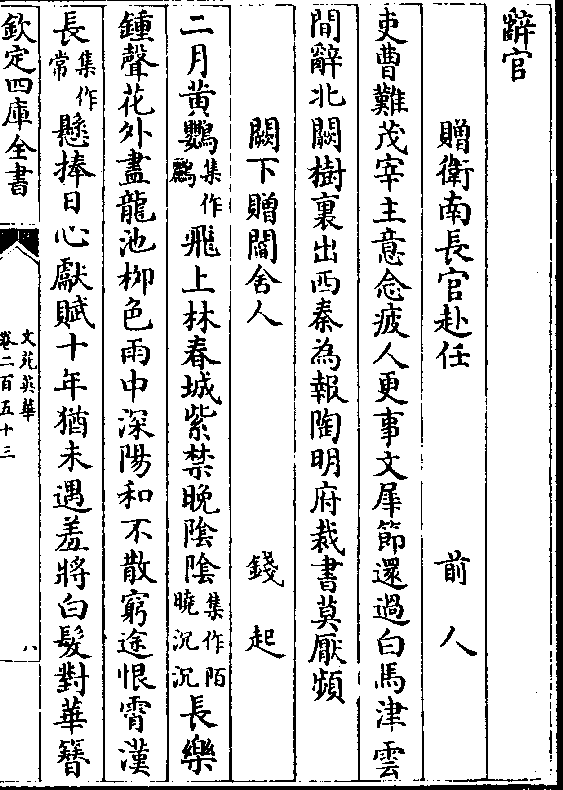 辭官
贈衛南長官赴任　前人
吏曹難茂宰主意念疲人更事文犀節還過白馬津雲
間辭北闕樹裏出西秦為報陶明府裁書莫厭頻
闕下贈閻舍人　錢起
二月黃鸚集作鸝飛上林春城紫禁晚陰陰集作陌曉沉沉長樂
鍾聲花外盡龍池柳色雨中深陽和不散窮途恨霄漢
長集作常懸捧日心獻賦十年猶未遇羞將白髮對華簪
欽定四庫全書
文苑英華
卷二百五十三
八